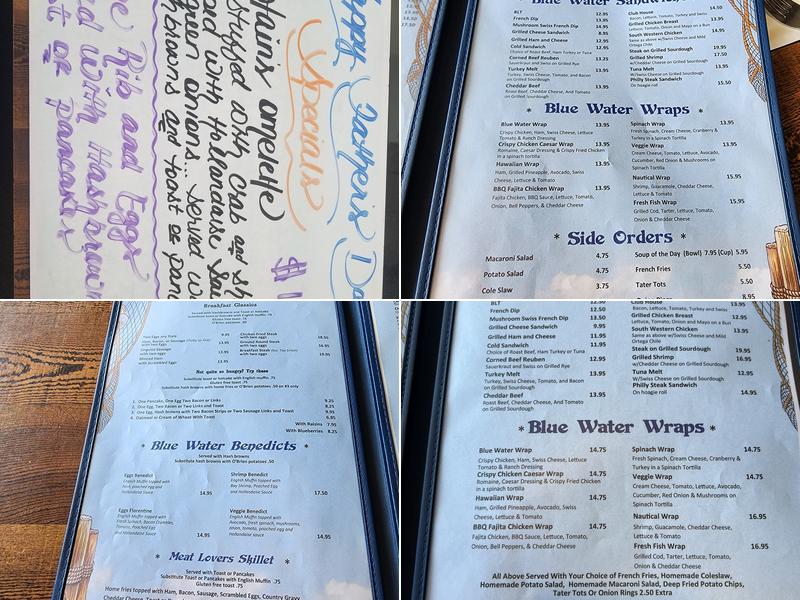 Happy Father's Da
Specials
omelette
stuffed with crab and
with Hollandaise
green onions... served
and toast or
Rib and Eggs
with Hash brow
or pancakes
Blue Water Sandwic
BLT 12.95
French Dip 13.95
Mushroom Swiss French Dip 14.95
Grilled Cheese Sandwich 8.95
Grilled Ham and Cheese 12.95
Cold Sandwich 12.95
Choice of Roast Beef, Ham Turkey or Tuna
Corned Beef Reuben 13.25
Sauerkraut and Swiss on Grilled Rye
Turkey Melt 13.95
Turkey, Swiss Cheese, Tomato, and Bacon
on Grilled Sourdough
Cheddar Beef 13.95
Roast Beef, Cheddar Cheese, And Tomato
on Grilled Sourdough
Club House 14.50
Bacon, Lettuce, Tomato, Turkey and Swiss
Grilled Chicken Breast
Lettuce, Tomato, Onion and Mayo on a Bun
South Western Chicken 14.95
Same as above w/Swiss Cheese and Mild
Ortega Chile
Steak on Grilled Sourdough 19.95
Grilled Shrimp 17.50
w/Cheddar Cheese on Grilled Sourdough
Tuna Melt 13.95
W/Swiss Cheese on Grilled Sourdough
Philly Steak Sandwich 15.50
On hoagie roll
* Blue Water Wraps *
Blue Water Wrap 13.95
Crispy Chicken, Ham, Swiss Cheese, Lettuce
Tomato & Ranch Dressing
Crispy Chicken Caesar Wrap 13.95
Romaine, Caesar Dressing & Crispy Fried Chicken
in a spinach tortilla
Hawaiian Wrap 13.95
Ham, Grilled Pineapple, Avocado, Swiss
Cheese, Lettuce & Tomato
BBQ Fajita Chicken Wrap 13.95
Fajita Chicken, BBQ Sauce, Lettuce, Tomato,
Onion, Bell Peppers, & Cheddar Cheese
Spinach Wrap 13.95
Fresh Spinach, Cream Cheese, Cranberry &
Turkey in a Spinach Tortilla
Veggie Wrap 13.95
Cream Cheese, Tomato, Lettuce, Avocado,
Cucumber, Red Onion & Mushrooms on
Spinach Tortilla
Nautical Wrap 15.95
Shrimp, Guacamole, Cheddar Cheese,
Lettuce & Tomato
Fresh Fish Wrap 15.95
Grilled Cod, Tarter, Lettuce, Tomato,
Onion & Cheddar Cheese
* Side Orders *
Macaroni Salad 4.75
Potato Salad 4.75
Cole Slaw 3.75
Soup of the Day (Bowl) 7.95 (Cup) 5.95
French Fries 5.50
Tater Tots 5.50
8.95
Breakfast Classics
Two Eggs any Style 9.25
with two Eggs 13.95
Chicken Fried Steak
with two eggs 16.50
Ground Round Steak
with two eggs 16.95
19.95
Not quite so hungry? Try these
Substitute toast or hotcake with English muffin .75
Gluten free toast .75
Substitute hash browns with home fries or O'Brien potatoes .50 on #3 only
1. One Pancake, One Egg Two Bacon or Links 9.25
2. One Egg, Two Bacon or Two Links and Toast 8.25
3. One Egg, Hash browns with Two Bacon Strips or Two Sausage Links and Toast 9.95
4. Oatmeal or Cream of Wheat With Toast 6.95
With Raisins 7.95
With Blueberries 8.25
* Blue Water Benedicts *
Served with Hash browns
Substitute hash browns with O'Brien potatoes .50
Eggs Benedict
English Muffin topped with
ham, poached egg and
Hollandaise Sauce 14.95
Shrimp Benedict
English Muffin topped with
Bay Shrimp, Poached Egg
and Hollandaise Sauce 17.50
Eggs Florentine
English Muffin topped with
Fresh Spinach, Bacon Crumbles,
Tomato, Poached Egg
and Hollandaise Sauce 14.95
Veggie Benedict
English Muffin topped with
Avocado, fresh spinach, mushrooms,
onion, tomato, poached egg and
Hollandaise sauce 14.95
* Meat Lovers Skillet *
Served with Toast or Pancakes
Substitute Toast or Pancakes with English Muffin .75
Gluten free toast .75
Home fries topped with Ham, Bacon, Sausage, Scrambled Eggs, Country Gravy
BLT 12.50
French Dip 12.50
Mushroom Swiss French Dip 13.50
Grilled Cheese Sandwich 9.95
Grilled Ham and Cheese 11.95
Cold Sandwich 11.95
Choice of Roast Beef, Ham Turkey or Tuna
Corned Beef Reuben 12.95
Sauerkraut and Swiss on Grilled Rye
Turkey Melt 13.95
Turkey, Swiss Cheese, Tomato, and Bacon
on Grilled Sourdough
Cheddar Beef 13.95
Roast Beef, Cheddar Cheese, And Tomato
on Grilled Sourdough
Club House
Bacon, Lettuce, Tomato, Turkey and Swiss
Grilled Chicken Breast
Lettuce, Tomato, Onion and Mayo on a Bun
South Western Chicken 13.95
Same as above w/Swiss Cheese and Mild
Ortega Chile
Steak on Grilled Sourdough 19.95
Grilled Shrimp 16.95
w/Cheddar Cheese on Grilled Sourdough
Tuna Melt 12.95
W/Swiss Cheese on Grilled Sourdough
Philly Steak Sandwich
On hoagie roll 14.95
* Blue Water Wraps *
Blue Water Wrap 14.75
Crispy Chicken, Ham, Swiss Cheese, Lettuce
Tomato & Ranch Dressing
Crispy Chicken Caesar Wrap 14.75
Romaine, Caesar Dressing & Crispy Fried Chicken
in a spinach tortilla
Hawaiian Wrap 14.75
Ham, Grilled Pineapple, Avocado, Swiss
Cheese, Lettuce & Tomato
BBQ Fajita Chicken Wrap 14.75
Fajita Chicken, BBQ Sauce, Lettuce, Tomato,
Onion, Bell Peppers, & Cheddar Cheese
Spinach Wrap 14.75
Fresh Spinach, Cream Cheese, Cranberry &
Turkey in a Spinach Tortilla
Veggie Wrap 14.75
Cream Cheese, Tomato, Lettuce, Avocado,
Cucumber, Red Onion & Mushrooms on
Spinach Tortilla
Nautical Wrap 16.95
Shrimp, Guacamole, Cheddar Cheese,
Lettuce & Tomato
Fresh Fish Wrap 16.95
Grilled Cod, Tarter, Lettuce, Tomato,
Onion & Cheddar Cheese
All Above Served With Your Choice of French Fries, Homemade Coleslaw,
Homemade Potato Salad, Homemade Macaroni Salad, Deep Fried Potato Chips,
Tater Tots Or Onion Rings 2.50 Extra